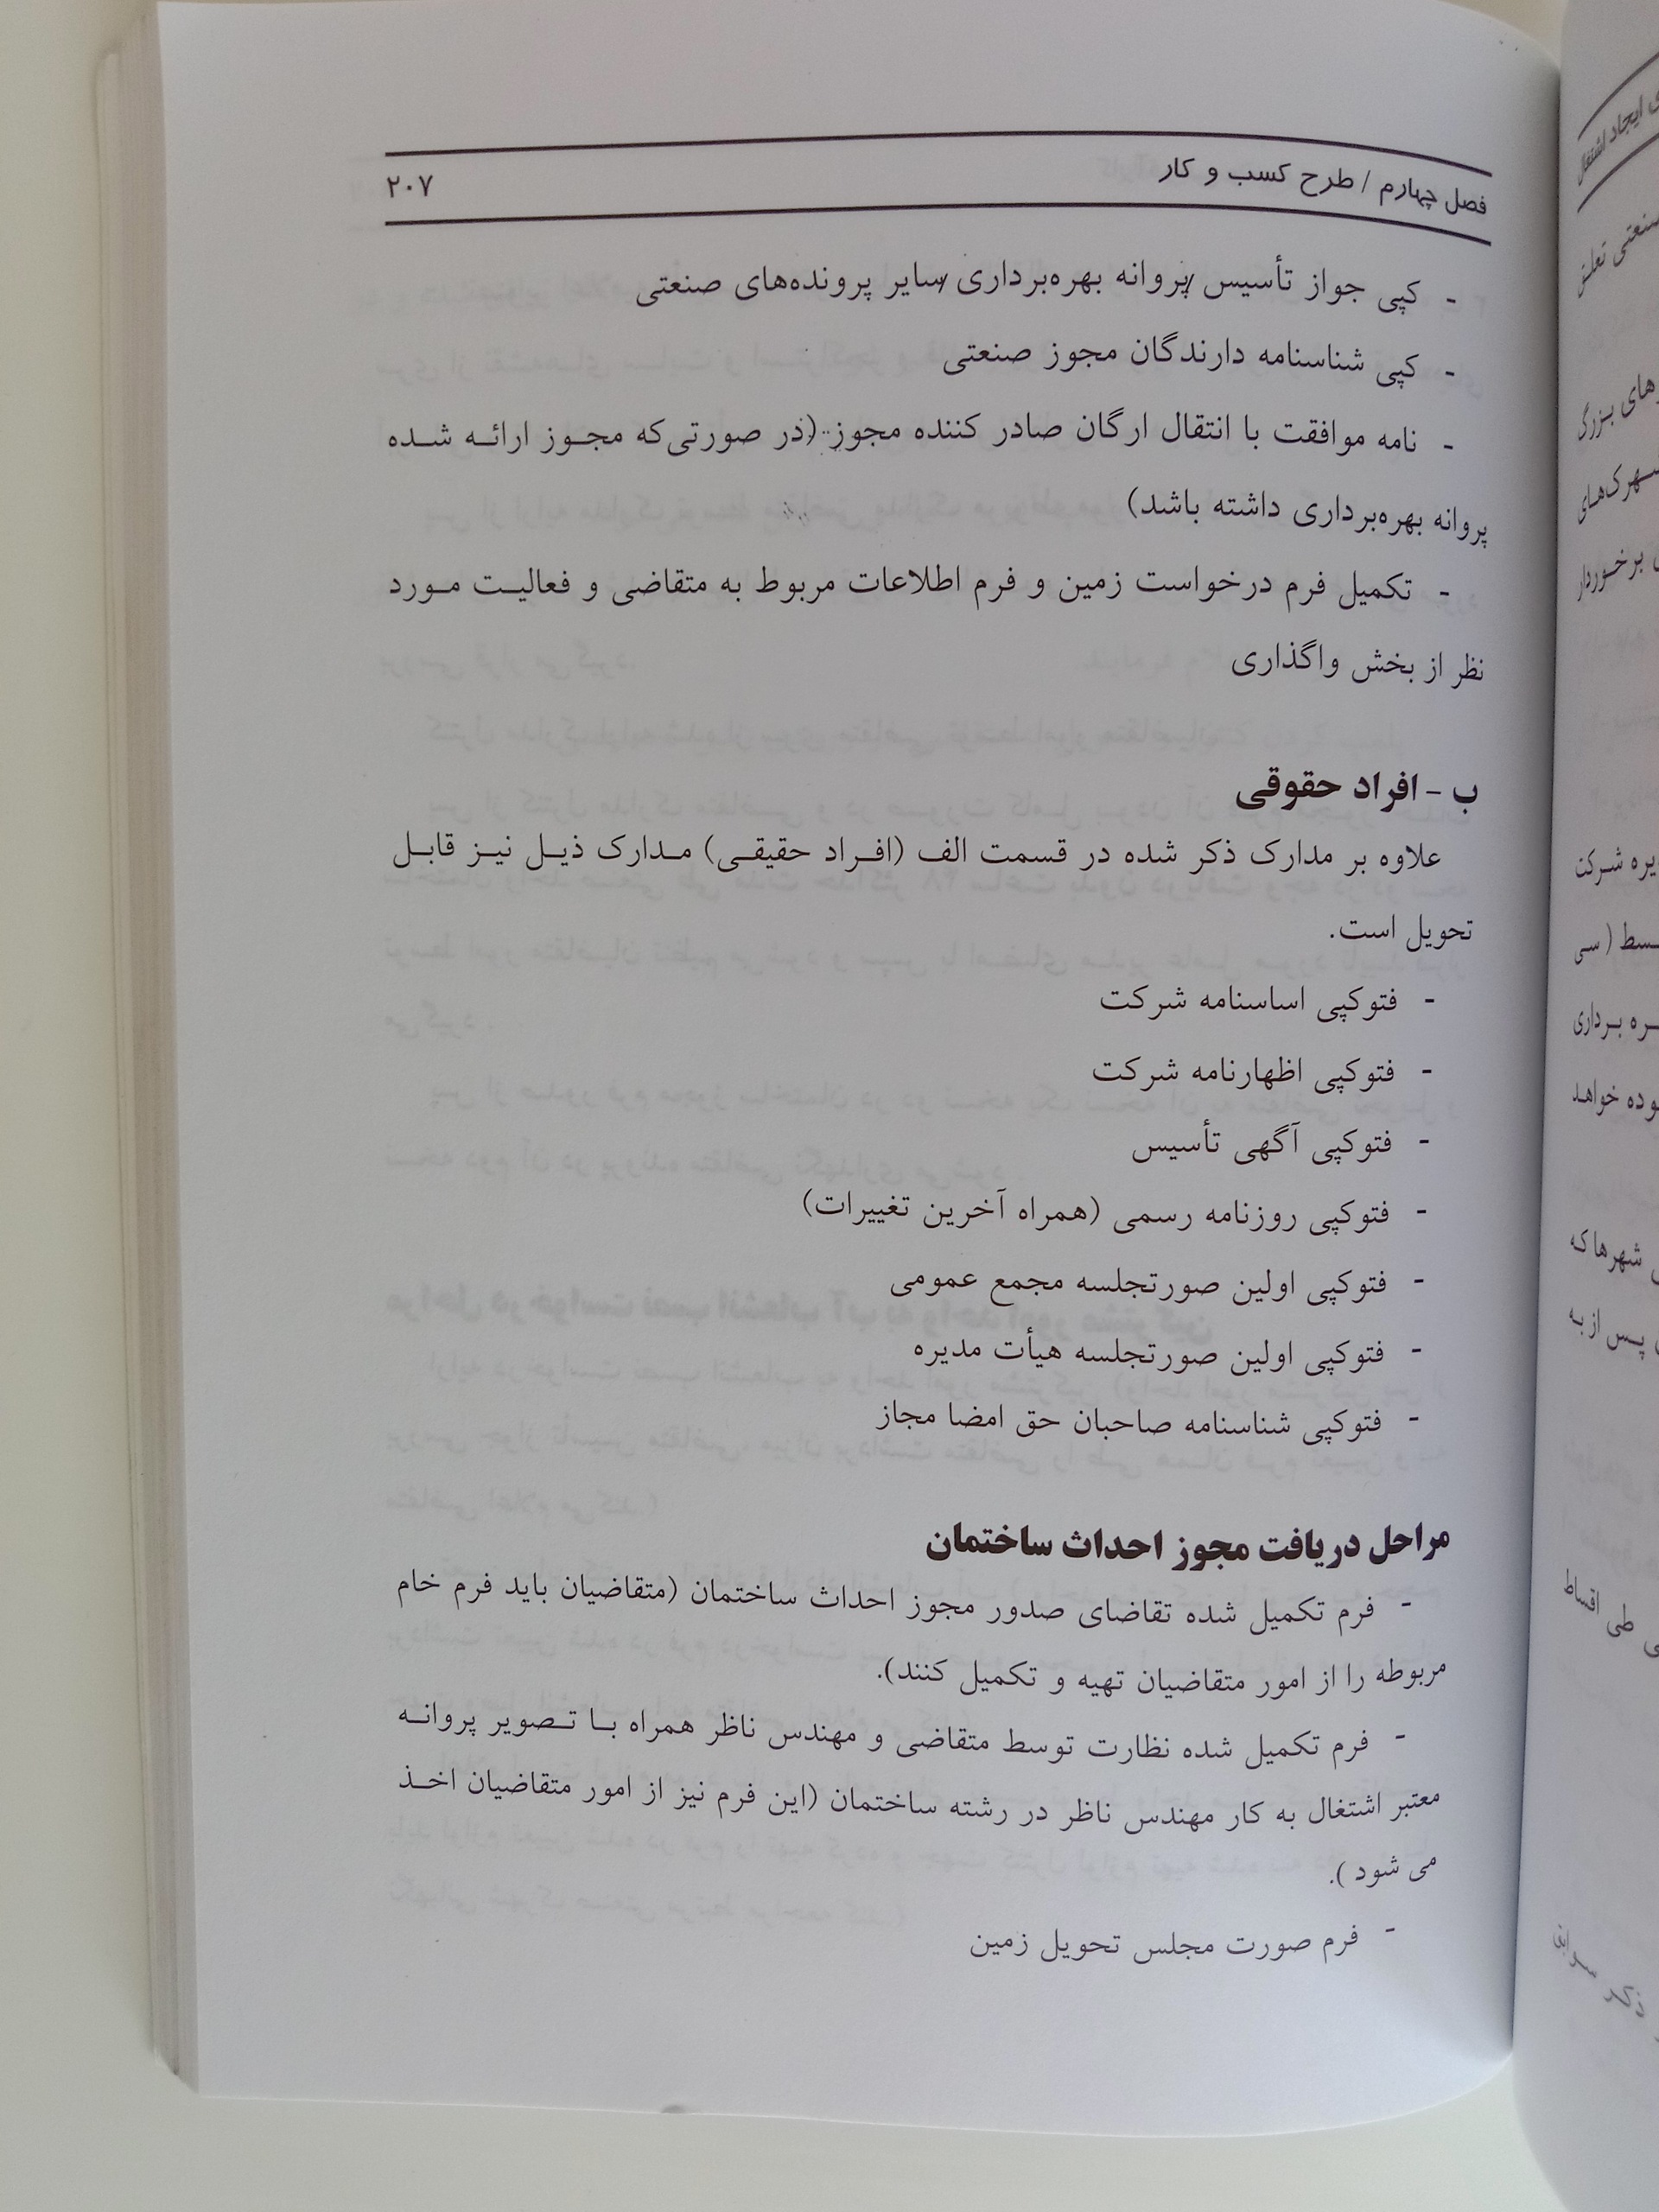 فصل چهارم / طرح کسب و کار ۲۰۷
- کپی جواز تأسیس /پروانه بهره‌برداری /سایر پرونده‌های صنعتی
- کپی شناسنامه دارندگان مجوز صنعتی
- نامه موافقت با انتقال ارگان صادر کننده مجوز (در صورتی‌که مجـوز ارائـه شـده
پروانه بهره‌برداری داشته باشد)
- تکمیل فرم درخواست زمین و فرم اطلاعات مربوط به متقاضی و فعالیـت مـورد
نظر از بخش واگذاری
ب - افراد حقوقی
علاوه بر مدارک ذکر شده در قسمت الف (افـراد حقیقـی) مـدارک ذیـل نیـز قابـل
تحویل است.
- فتوکپی اساسنامه شرکت
- فتوکپی اظهارنامه شرکت
- فتوکپی آگهی تأسیس
- فتوکپی روزنامه رسمی (همراه آخرین تغییرات)
- فتوکپی اولین صورتجلسه مجمع عمومی
- فتوکپی اولین صورتجلسه هیأت مدیره
- فتوکپی شناسنامه صاحبان حق امضا مجاز
مراحل دریافت مجوز احداث ساختمان
- فرم تکمیل شده تقاضای صدور مجوز احداث ساختمان (متقاضیان باید فرم خام
مربوطه را از امور متقاضیان تهیه و تکمیل کنند).
- فرم تکمیل شده نظارت توسط متقاضی و مهندس ناظر همراه بـا تـصویر پروانـه
معتبر اشتغال به کار مهندس ناظر در رشته ساختمان (این فرم نیز از امور متقاضیان اخـذ
می شود ).
- فرم صورت مجلس تحویل زمین
ایجاد اشتغال
صنعتی تعلق
های بـزرگ
برخـوردار
یره شـرکت
ـسط ( سی
ـره بـرداری
وده خواهـد
شهرها که
پـس از بـه
طی اقساط